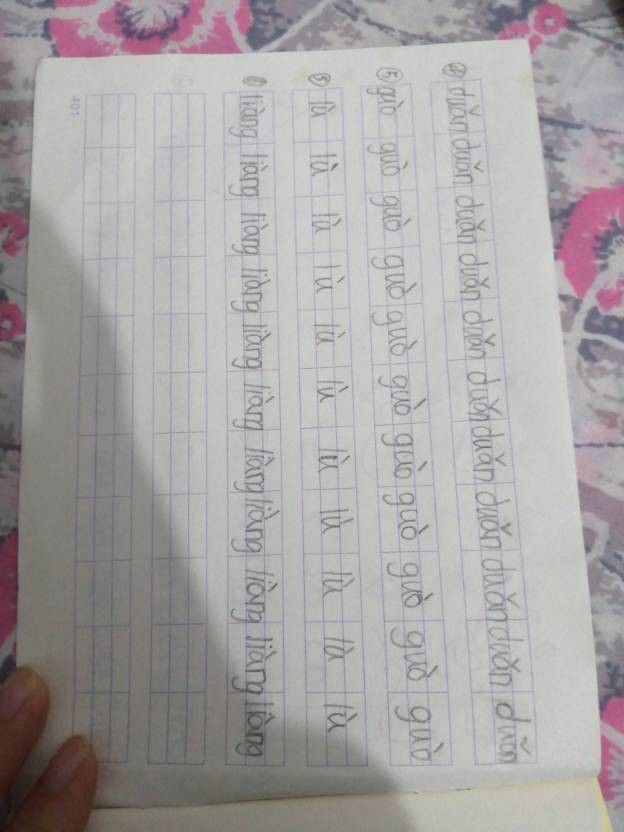 ④ duǎn duǎn duǎn duǎn duǎn duǎn duǎn duǎn duǎn duǎn duǎn
⑤ guò guò guò guò guò guò guò guò guò guò guò
⑤ lù lù lù lù lù lù lù lù lù lù lù
⑥ liàng liàng liàng liàng liàng liàng liàng liàng liàng liàng liàng
401